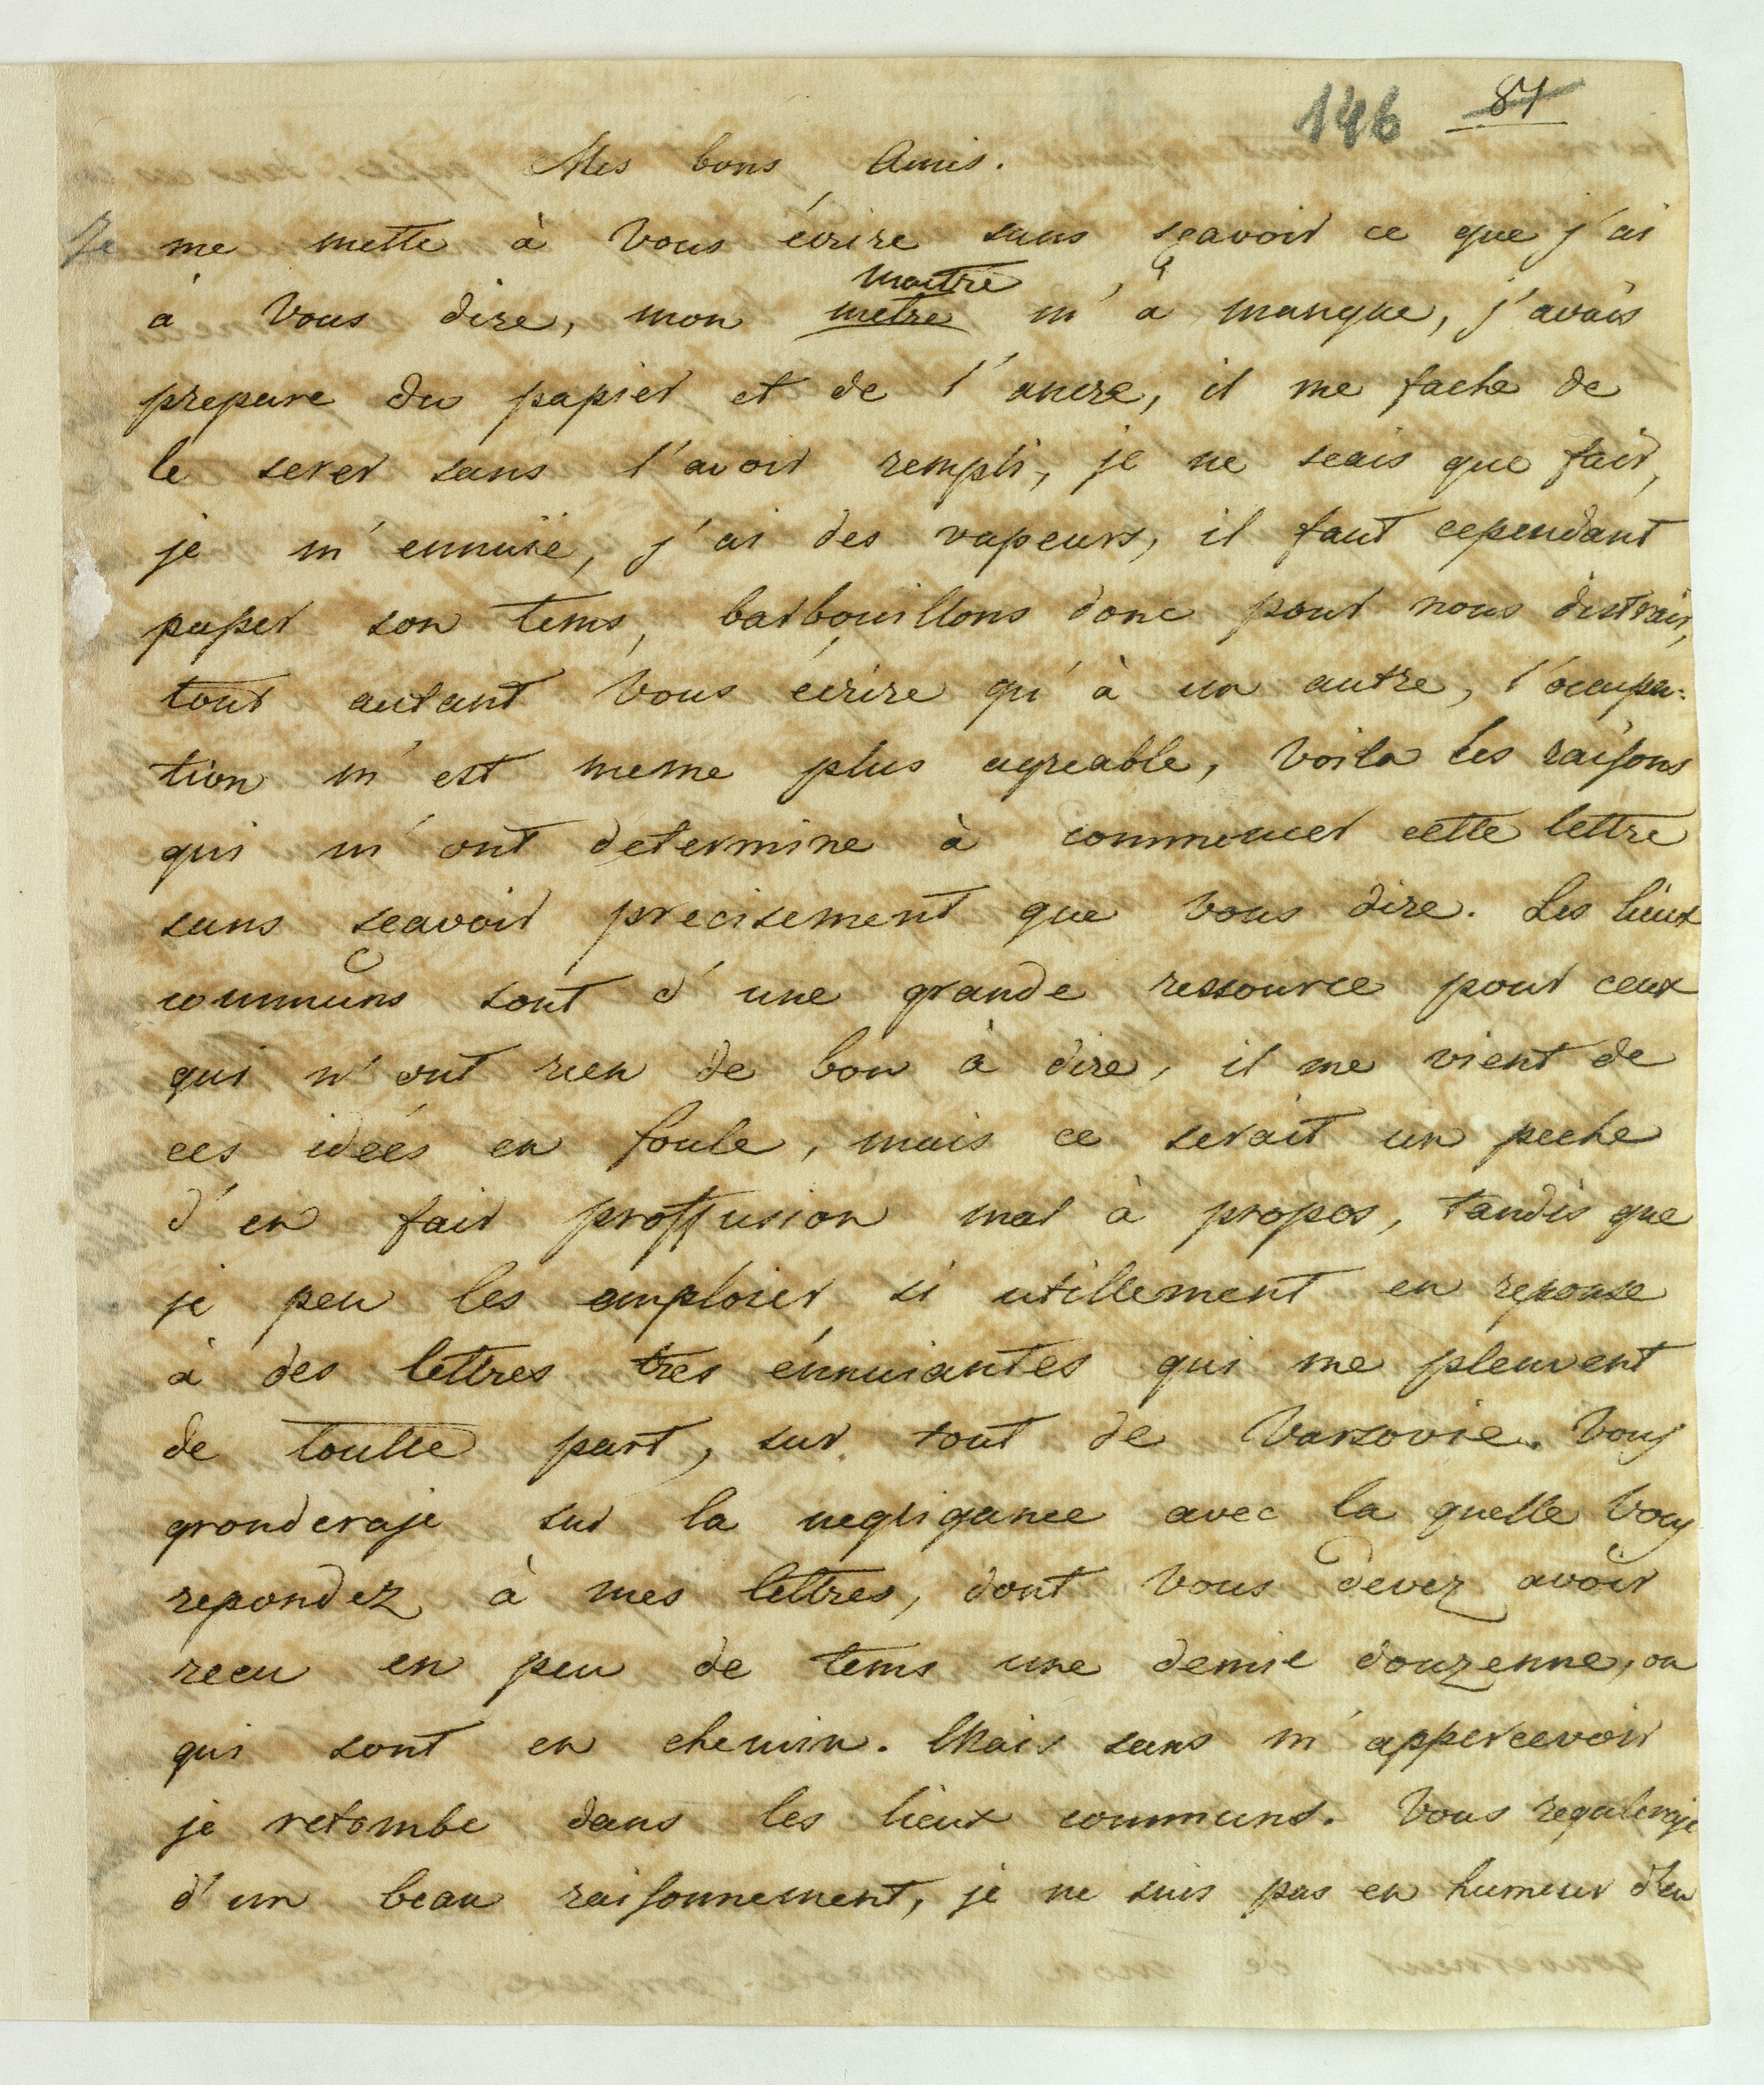 146 87
Mes bons Amis.
Je me mette à Vous écrire sans sçavoir ce que j'ai
maitre
à Vous dire, mon metre m'a manque, j'avais
prepare du papier et de l'ancre, il me fache de
le serer sans l'avoir rempli, je ne scais que fair,
je m'ennuie, j'ai des vapeurs, il faut cependant
passer son tems, barbouillons donc pour nous distrair,
tout autant Vous écrire qu'à un autre, l'occupa=
tion m'est meme plus agreable, Voila les raisons
qui m'ont determine à commencer cette lettre
sans sçavoir precisement que Vous dire. Les lieux
communs sont d'une grande ressource pour ceux
qui n'ont rien de bon à dire, il me vient de
ces ideés en foule, mais ce serait un peche
d'en fair proffusion mal à propos, tandis que
je peu les emploier si utillement en reponse
à des lettres tres énnuiantes qui me pleuvent
de toutte part, sur tout de Varsovie. Vous
gronderaje sur la negligance avec la quelle Vous
repondez à mes lettres, dont Vous devez avoir
recu en peu de tems une demie douzenne, ou
qui sont en chemin. Mais sans m'appercevoir
je retombe dans les lieux communs. Vous regaleraje
d'un beau raisonnement, je ne suis pas en humeur d'en